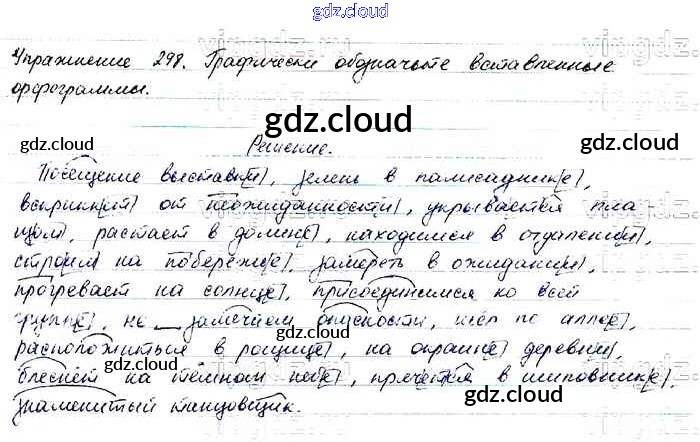 gdz.cloud
Упражнение 298. Графически обозначьте вставленные
орфограммы.
gdz.cloud
gdz.cloud
gdz.cloud
gdz.cloud
Решение.
Посещение выставк[и], зелень в палисадник[е],
вскрикн[ет] от неожиданност[и], укрывается пла
щом, растает в долин[е], находимся в отдалени[и],
строим на побережь[е], замереть в ожидани[и],
прогревает на солнц[е], присоединимся ко всей
групп[е], не замечаем опусности, шёл по алле[е],
расположиться в рощиц[е], на окраин[е] деревн[и],
блеснёт на тёмном неб[е], прячется в шиповник[е],
знаменитый танцовщик.
gdz.cloud
gdz.cloud
gdz.cloud
gdz.cloud
gdz.cloud